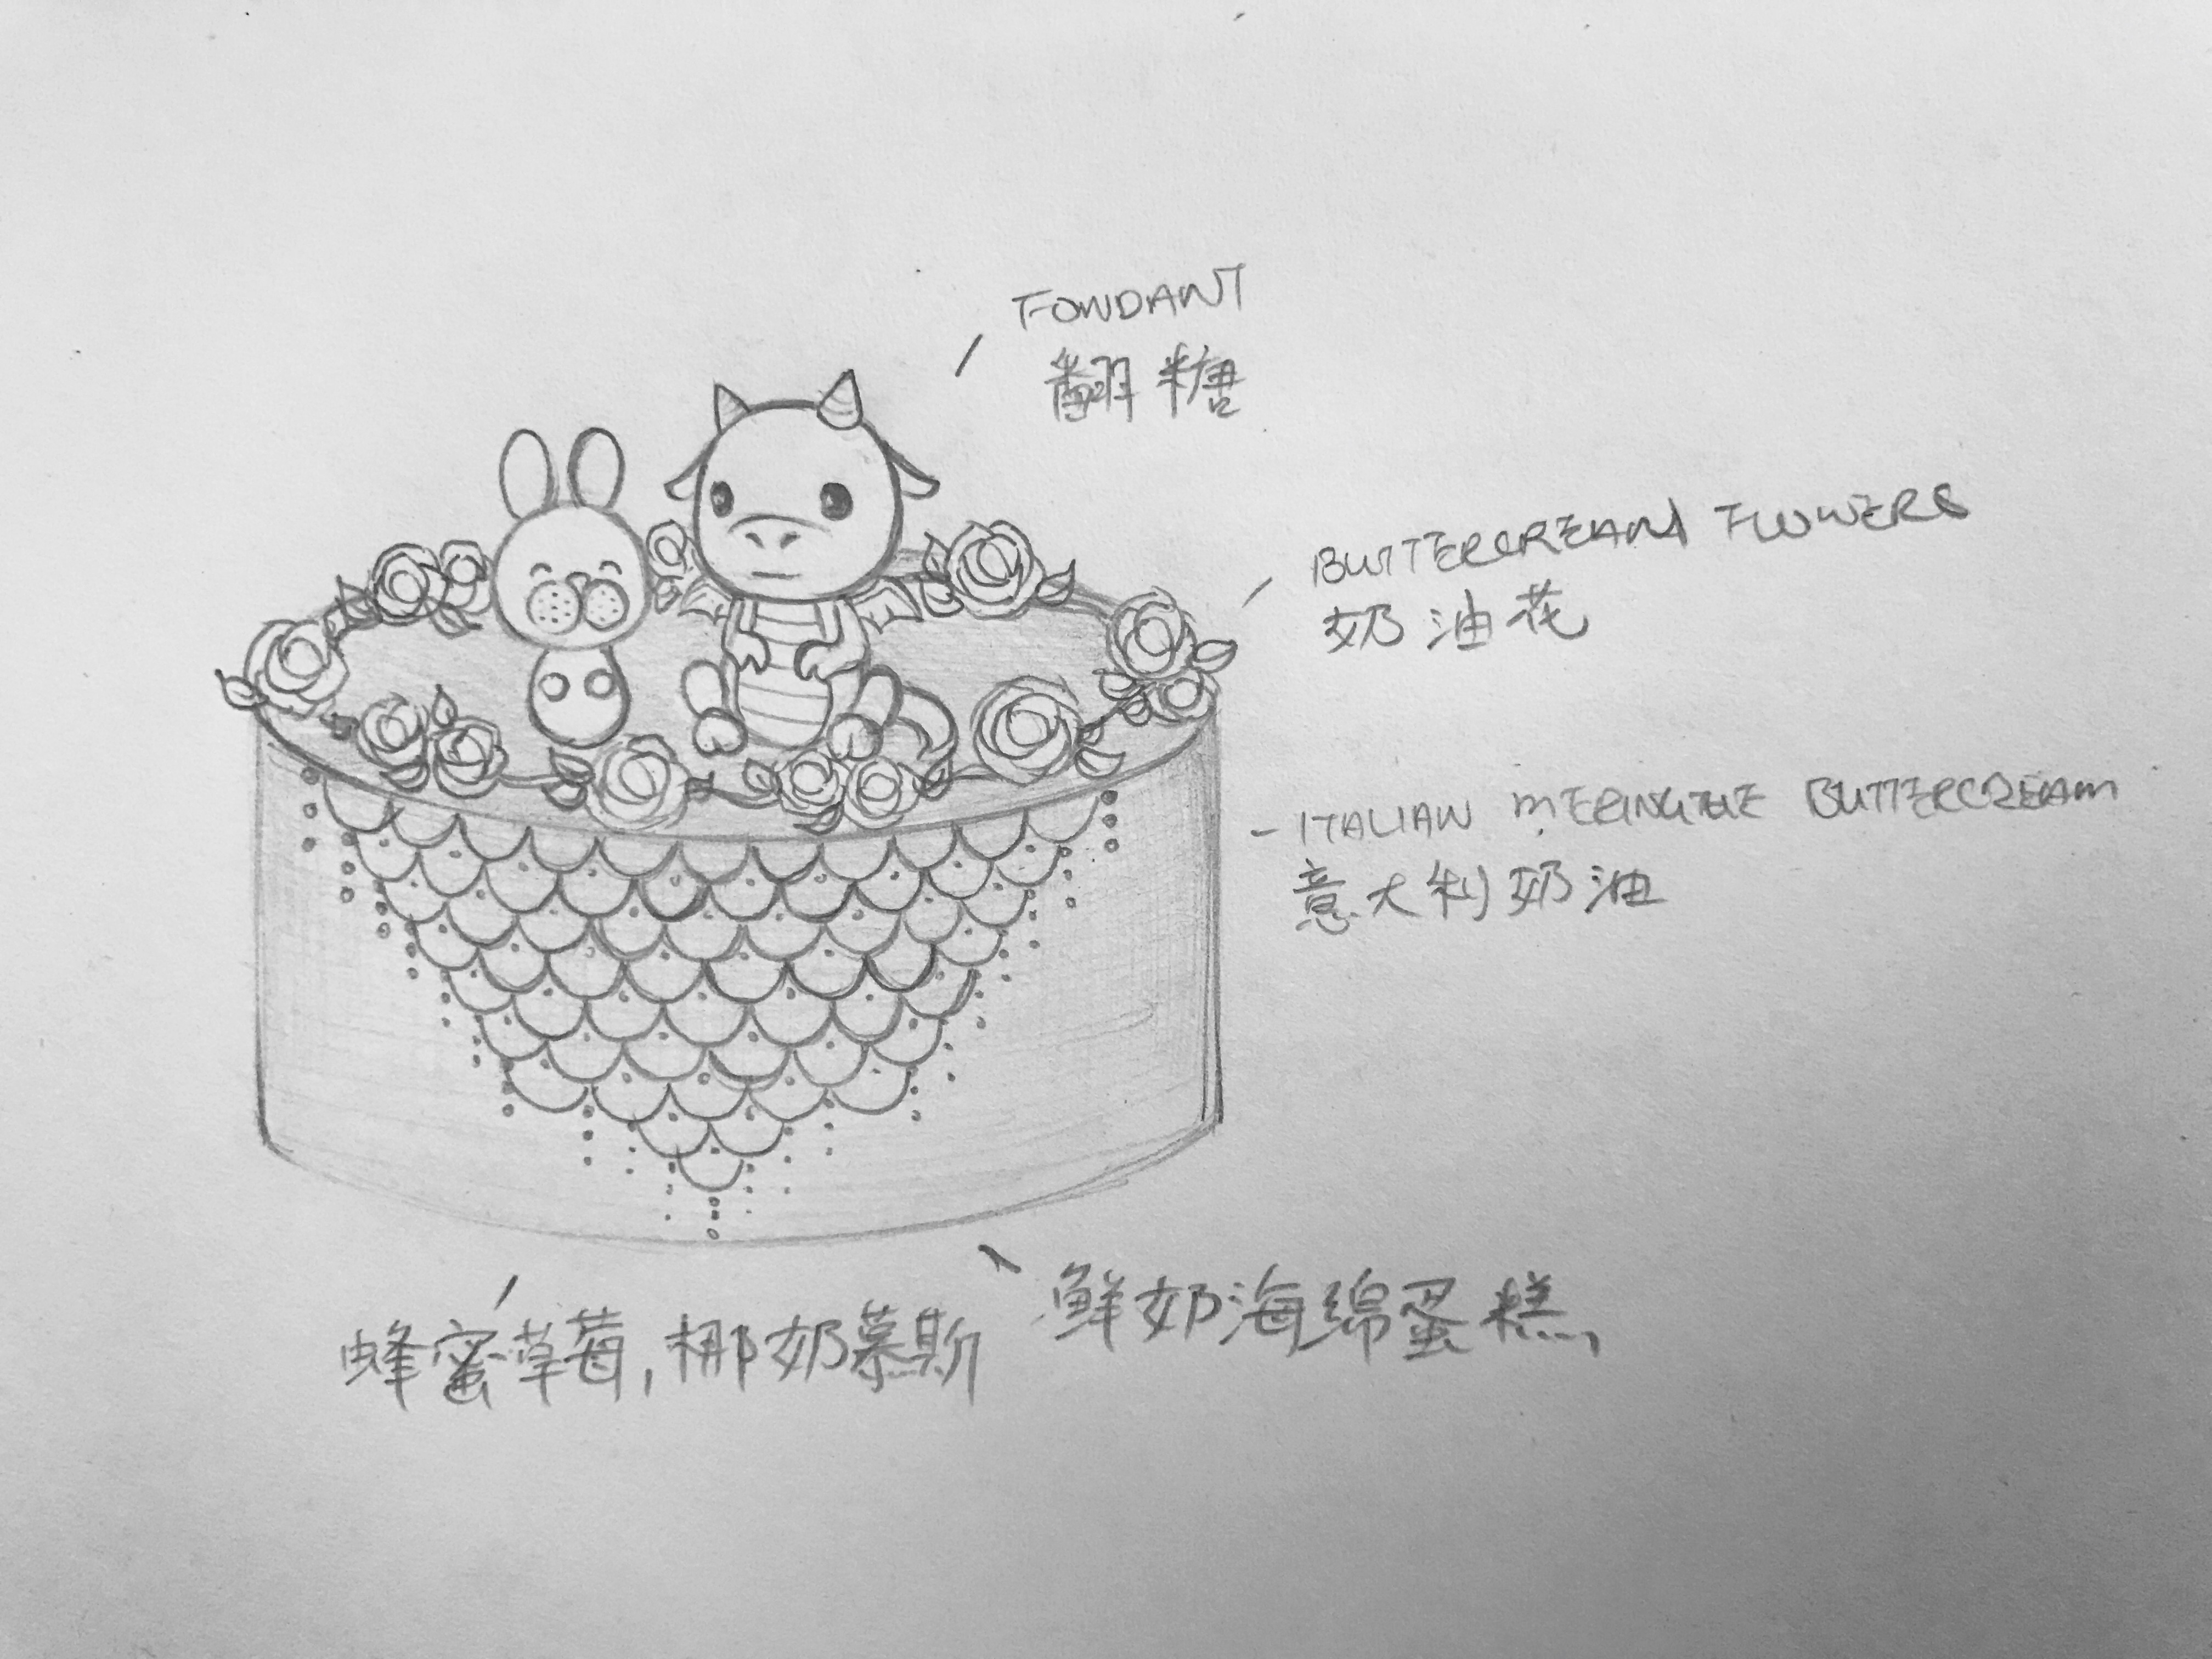 FONDANT
翻糖
BUTTERCREAM FLOWERS
奶油花
- ITALIAN MERINGUE BUTTERCREAM
意大利奶油
鲜奶海绵蛋糕,
蜂蜜草莓,椰奶慕斯